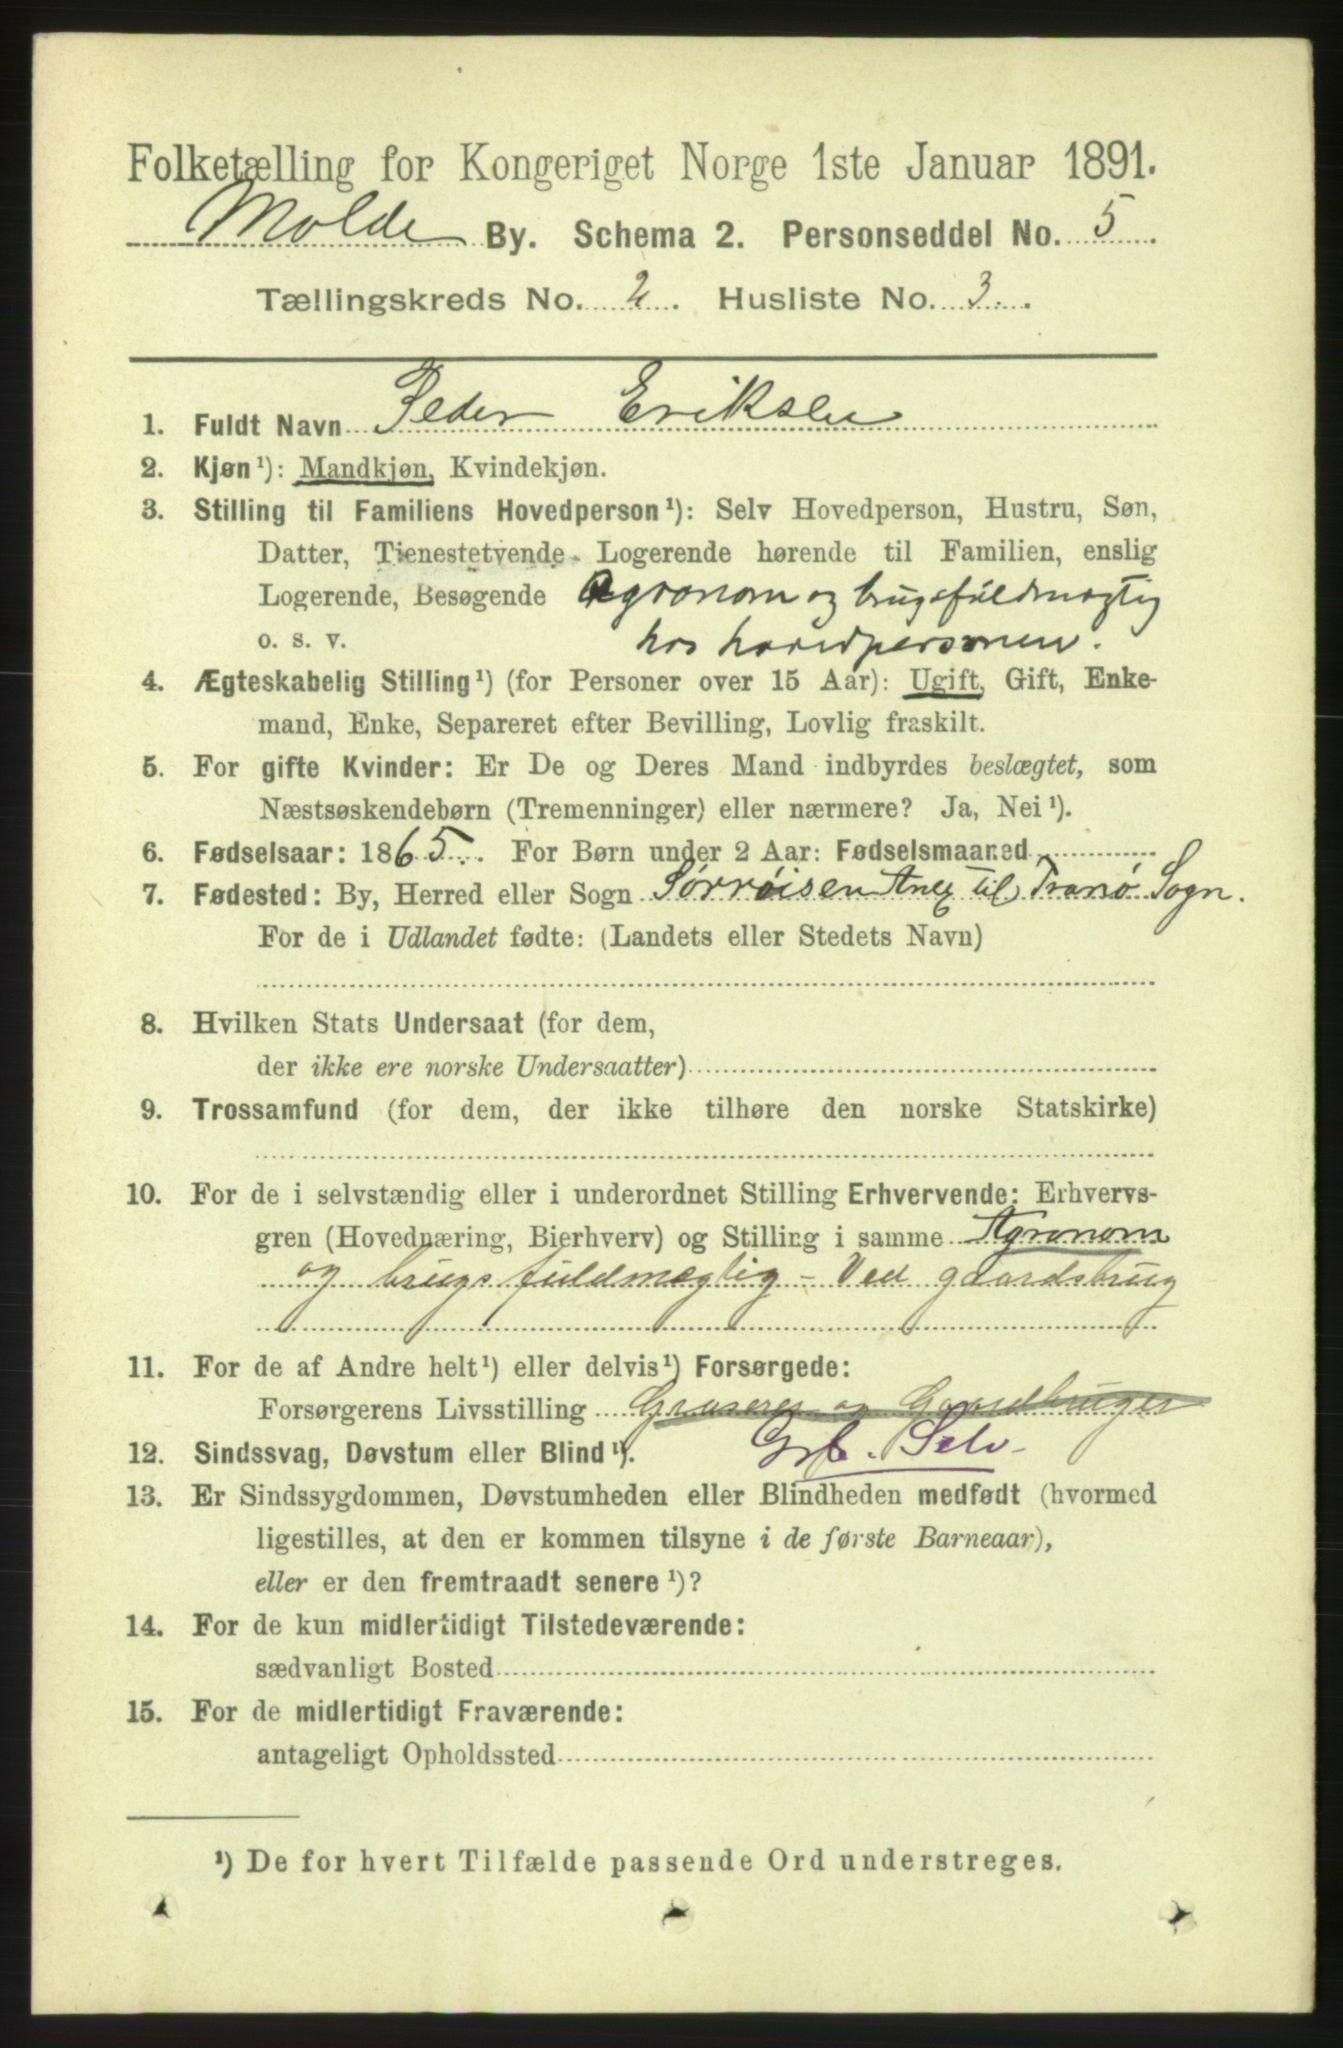 Folketælling for Kongeriget Norge 1ste Januar 1891.
Molde By. Schema 2. Personseddel No. 5.
Tællingskreds No. 2. Husliste No. 3.
1. Fuldt Navn Peder Eriksen
2. Kjøn¹): Mandkjøn, Kvindekjøn.
3. Stilling til Familiens Hovedperson¹): Selv Hovedperson, Hustru, Søn,
Datter, Tienestetyende, Logerende hørende til Familien, enslig
Logerende, Besøgende Agronom og brugsfuldmægtig
o. s. v. hos hovedpersonen.
4. Ægteskabelig Stilling¹) (for Personer over 15 Aar): Ugift, Gift, Enke-
mand, Enke, Separeret efter Bevilling, Lovlig fraskilt.
5. For gifte Kvinder: Er De og Deres Mand indbyrdes beslægtet, som
Næstsøskendebørn (Tremenninger) eller nærmere? Ja, Nei¹).
6. Fødselsaar: 1865. For Børn under 2 Aar: Fødselsmaaned
7. Fødested: By, Herred eller Sogn Sørrøisen Anex til Tranø Sogn.
For de i Udlandet fødte: (Landets eller Stedets Navn)
8. Hvilken Stats Undersaat (for dem,
der ikke ere norske Undersaatter)
9. Trossamfund (for dem, der ikke tilhøre den norske Statskirke)
10. For de i selvstændig eller i underordnet Stilling Erhvervende: Erhvervs-
gren (Hovednæring, Bierhverv) og Stilling i samme Agronom
og brugsfuldmægtig – Ved gaardsbrug
11. For de af Andre helt¹) eller delvis¹) Forsørgede:
Forsørgerens Livsstilling og Gaardbruger
12. Sindssvag, Døvstum eller Blind¹). Selv
13. Er Sindssygdommen, Døvstumheden eller Blindheden medfødt (hvormed
ligestilles, at den er kommen tilsyne i de første Barneaar),
eller er den fremtraadt senere¹)?
14. For de kun midlertidigt Tilstedeværende:
sædvanligt Bosted
15. For de midlertidigt Fraværende:
antageligt Opholdssted
¹) De for hvert Tilfælde passende Ord understreges.